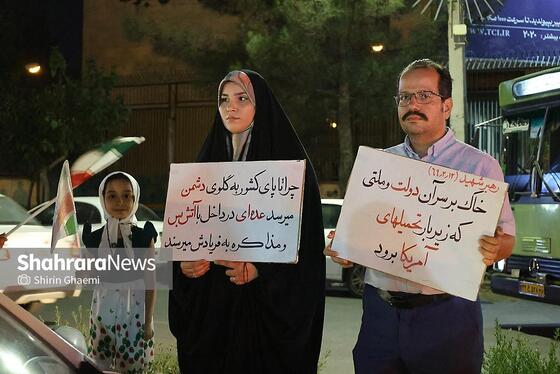 TCI.IR
چرا تا پای کشور به گلوی دشمن
میرسد عده‌ای در داخل با آتش بس
و مذاکره به فریادش میرسند
رهبر شهید (۶۹،۲،۱۲)
خاک بر سر آن دولت و ملتی
که زیر بار تحمیلهای
آمریکا برود
ShahraraNews
© Shirin Ghaemi